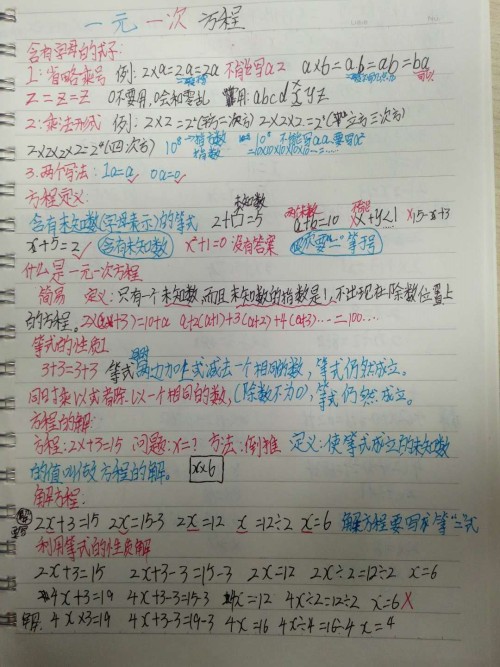 一元一次方程
含有字母的式子:
1:省略乘号 例:2×a=2a=2a 不能写a2 a×b=a·b=ab=ba
Z=Z=Z O不要用,O会和零乱 常用:abcdxyz
2:乘法形式 例:2×2=2²(平方=次方) 2×2×2=2³(立方三次方)
2×2×2×2=2⁴(四次方) 10⁸→指数 10⁸不能写aa要写a²
=10×10×10×10×10……
3.两个写法:1a=a 0a=0
方程定义: 未知数
含有未知数(字母表示)的等式 2+口=5 a+b=10 x+y<1 x15-x+3
x+5=2 含有未知数 x²+1=0没有答案 必须要"="等于号
什么是一元一次方程
简易 定义:只有一个未知数而且未知数的指数是1,不出现在除数位置上
的方程。2×(a+3)=10+a a+2(a+1)+3(a+2)+4(a+3)……=100……
等式的性质1
3+3=3+3 等式两边加上或减去一个相同的数,等式仍然成立。
同时乘以或者除以一个相同的数,(除数不为0),等式仍然成立。
方程的解:
方程:2x+3=15 问题:x=? 方法:倒推 定义:使等式成立的未知数
的值叫做方程的解。 x×6
解方程:
2x+3=15 2x=15-3 2x=12 x=12÷2 x=6 解方程要写成等"="式
利用等式的性质解
2x+3=15 2x+3-3=15-3 2x=12 2x÷2=12÷2 x=6
4x+3=19 4x+3-3=15-3 4x=12 4x÷2=12÷2 x=6 X
解: 4x×3=19 4x+3-3=19-3 4x=16 4x÷4=16-4 x=4